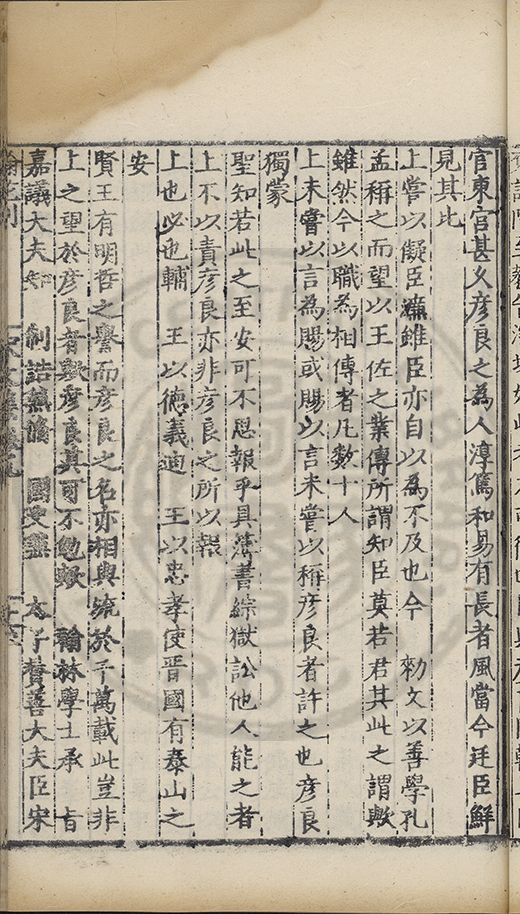 官東宮甚乆彦良之為人淳篤和昜有長者風當今廷臣鮮
見其此
上嘗以儗臣濂雖臣亦自以為不及也今 勑文以善學孔
孟稱之而望以王佐之業傳所謂知臣莫若君其此之謂歟
雖然今以職為相傅者凡數十人
上未嘗以言為賜或賜以言未嘗以稱彦良者許之也彦良
獨蒙
聖知若此之至安可不思報乎具簿書綜獄訟他人能之者
上不以責彦良亦非彦良之所以報
上也必也輔 王以德義迪 王以忠孝使晋國有泰山之
安
賢王有明哲之譽而彦良之名亦相與流於千萬載此豈非
上之望於彦良者歟彦良其可不勉歟 翰林學士承 旨
嘉議大夫知 制誥兼脩 國史兼 太子贊善大夫臣宋